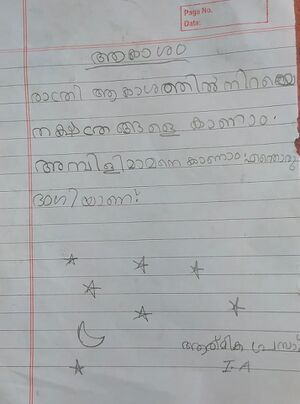 Page No.
Date:
ആകാശം
രാത്രി ആകാശത്തിൽ നിറയെ
നക്ഷത്രങ്ങളെ കാണാം.
അമ്പിളിമാമനെ കാണാം എന്തൊരു
ഭംഗിയാണ്!
I.A